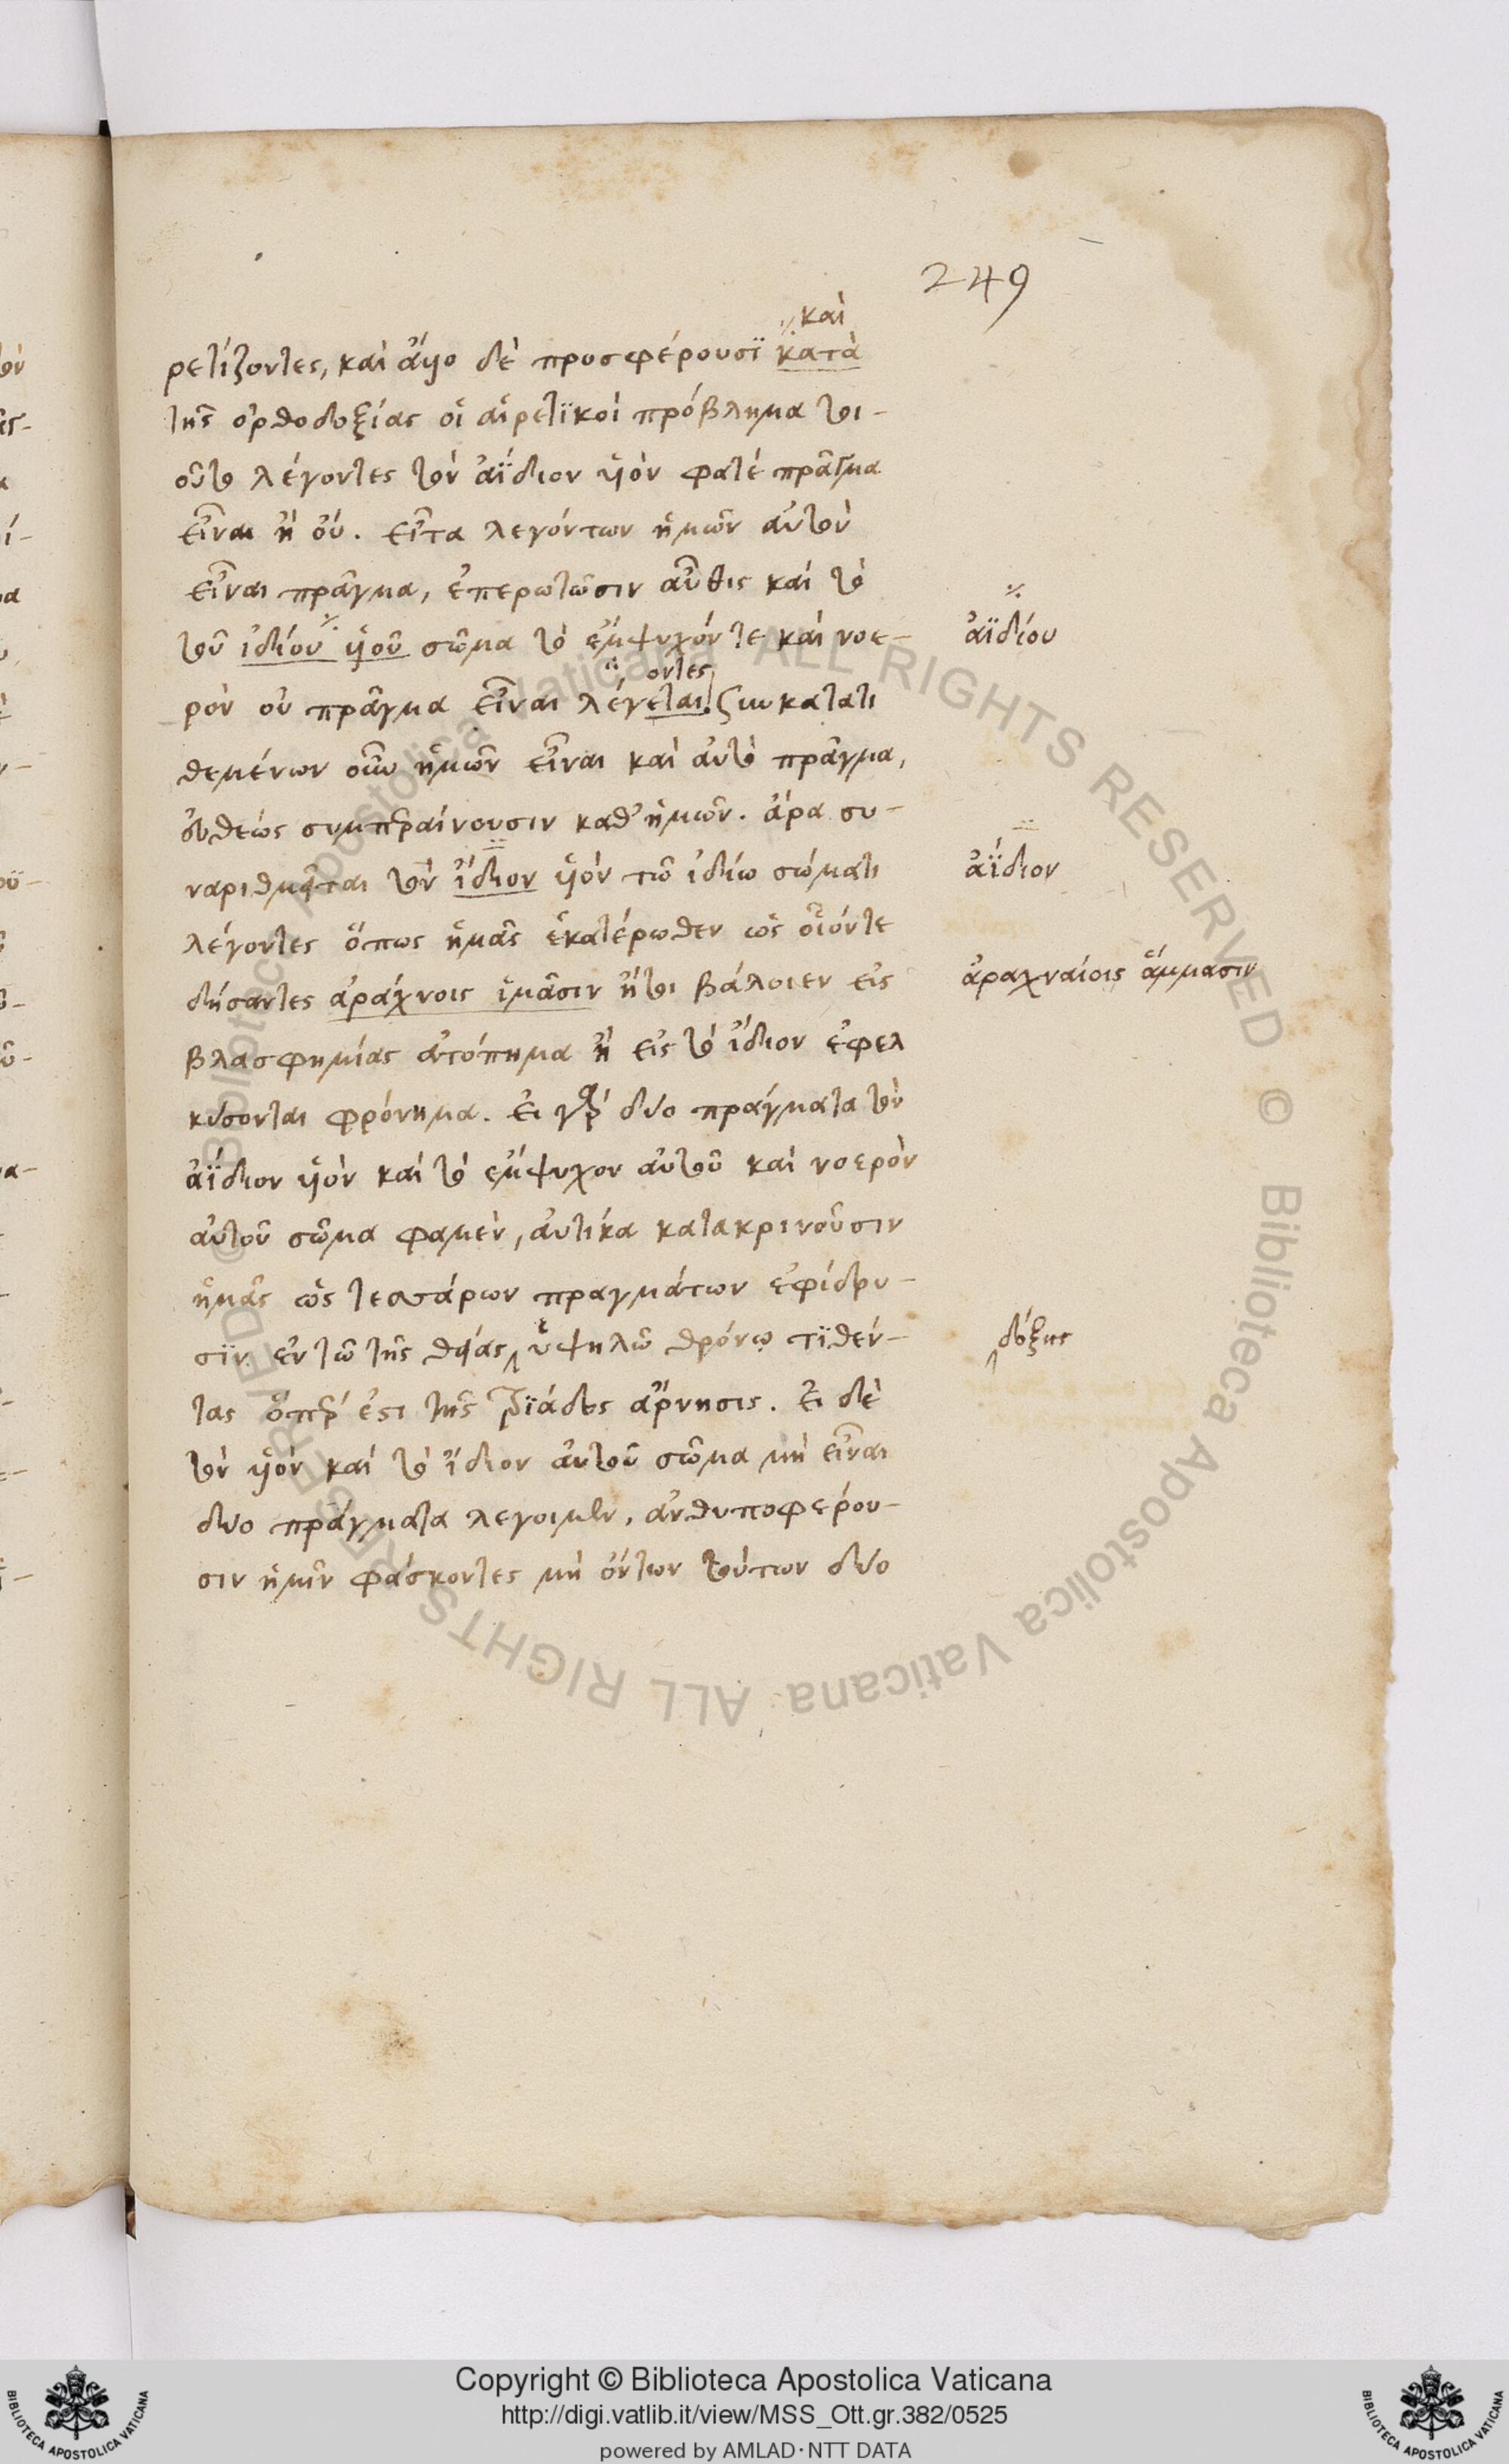 249
καὶ
ρετίζοντες, καὶ ἄλλο δὲ προσφέρουσϊ κατὰ
τῆς ὀρθοδοξίας οἱ αἱρετϊκοὶ πρόβλημα τοι-
οῦτο λέγοντες τὸν ἀΐδιον υἱὸν φατὲ πρᾶγμα
εἶναι ἢ οὐ. εἶτα λεγόντων ἡμῶν αὐτὸν
εἶναι πρᾶγμα, ἐπερωτῶσιν αὖθις καὶ τὸ
τοῦ ἰδίου υἱοῦ σῶμα τὸ ἔμψυχόν τε καὶ νοε-
ἀϊδίου
οντες
ρὸν οὐ πρᾶγμα εἶναι λέγεται; συγκατατι
θεμένων οὖν ἡμῶν εἶναι καὶ αὐτὸ πρᾶγμα,
εὐθέως συμπεραίνουσιν καθ' ἡμῶν. ἆρα συ-
ναριθμεῖται τὸν ἴδιον υἱὸν τῶ ἰδίω σώματι
ἀΐδιον
λέγοντες ὅπως ἡμᾶς ἑκατέρωθεν ὡς οἷόντε
δήσαντες ἀράχνοις ἱμᾶσιν ἤτοι βάλοιεν εἰς
ἀραχναίοις ἅμμασιν
βλασφημίας ἀτόπημα ἢ εἰς τὸ ἴδιον ἐφελ
κύσονται φρόνημα. εἰ γὰρ δύο πράγματα τὸν
ἀΐδιον υἱὸν καὶ τὸ ἔμψυχον αὐτοῦ καὶ νοερὸν
αὐτοῦ σῶμα φαμὲν, αὐτίκα κατακρινοῦσιν
ἡμᾶς ὡς τεσσάρων πραγμάτων ἐφίδρυ-
σϊν ἐν τῶ τῆς θείας ὑψηλῶ θρόνῳ τϊθέν-
δόξης
τας ὅπερ ἐστι τῆς τρϊάδος ἄρνησις. εἰ δὲ
τὸν υἱὸν καὶ τὸ ἴδιον αὐτοῦ σῶμα μὴ εἶναι
δύο πράγματα λέγοιμεν, ἀνθυποφέρου-
σιν ἡμῖν φάσκοντες μὴ ὄντων τούτων δύο
Copyright © Biblioteca Apostolica Vaticana
http://digi.vatlib.it/view/MSS_Ott.gr.382/0525
powered by AMLAD·NTT DATA